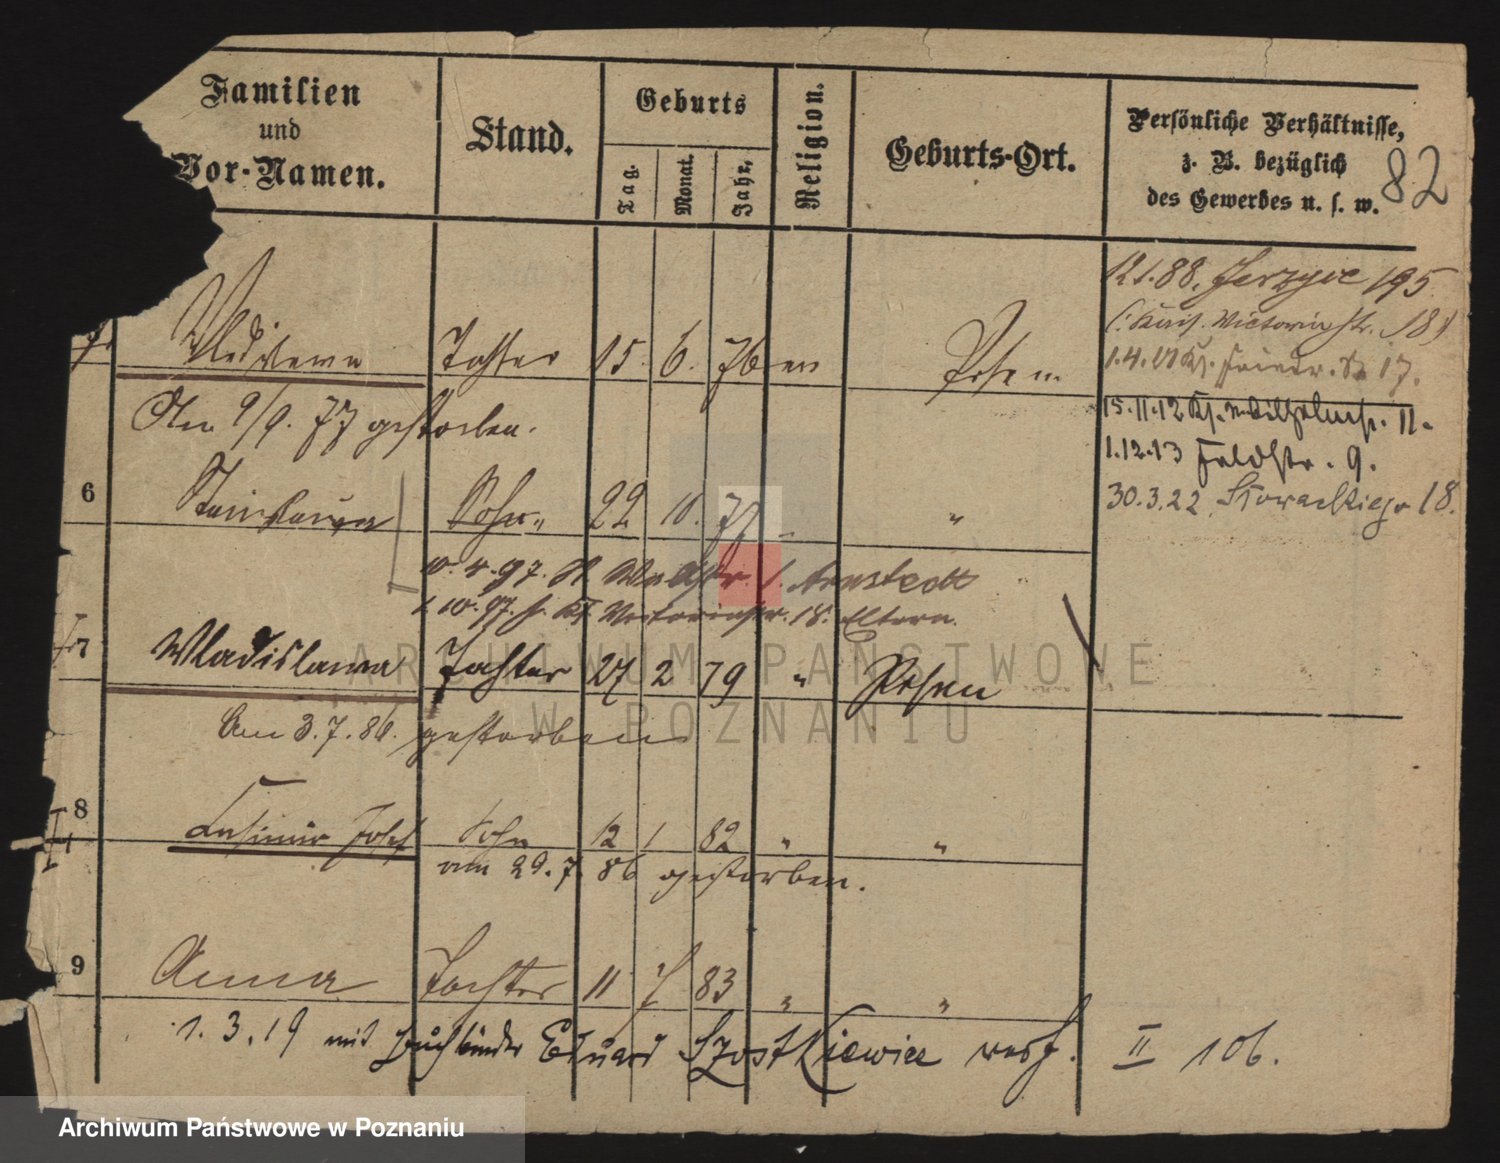 Familien
und
Vor-Namen.
Stand.
Geburts
Tag.
Monat.
Jahr.
Religion.
Geburts-Ort.
Persönliche Verhältnisse,
z. B. bezüglich
des Gewerbes u. s. w.
82
12 1.88. Jerzyce 195.
Victoriastr. 18)
1.4. 17.
Tochter 15. 6. 76 Posen
15.11.12 Wilhelmstr. 11.
Am 9/9. 77 gestorben.
1.12.13 Feldstr. 9.
30.3.22 Słowackiego 18.
6 Stanislaus Sohn 22 10. 77 "
97. Arnstedt
97. Victoriastr. 18. Eltern
7 Wladislawa Tochter 27 2 79 " Posen
Am 3.7.86. gestorben
8 Casimir Josef Sohn 12 1 82 " "
am 29.7.86 gestorben.
9 Anna Tochter 11 7 83 " "
1.3.19 mit Buchbinder Eduard Szostkiewicz verh. II 106.
ARCHIWUM PAŃSTWOWE
W POZNANIU
Archiwum Państwowe w Poznaniu